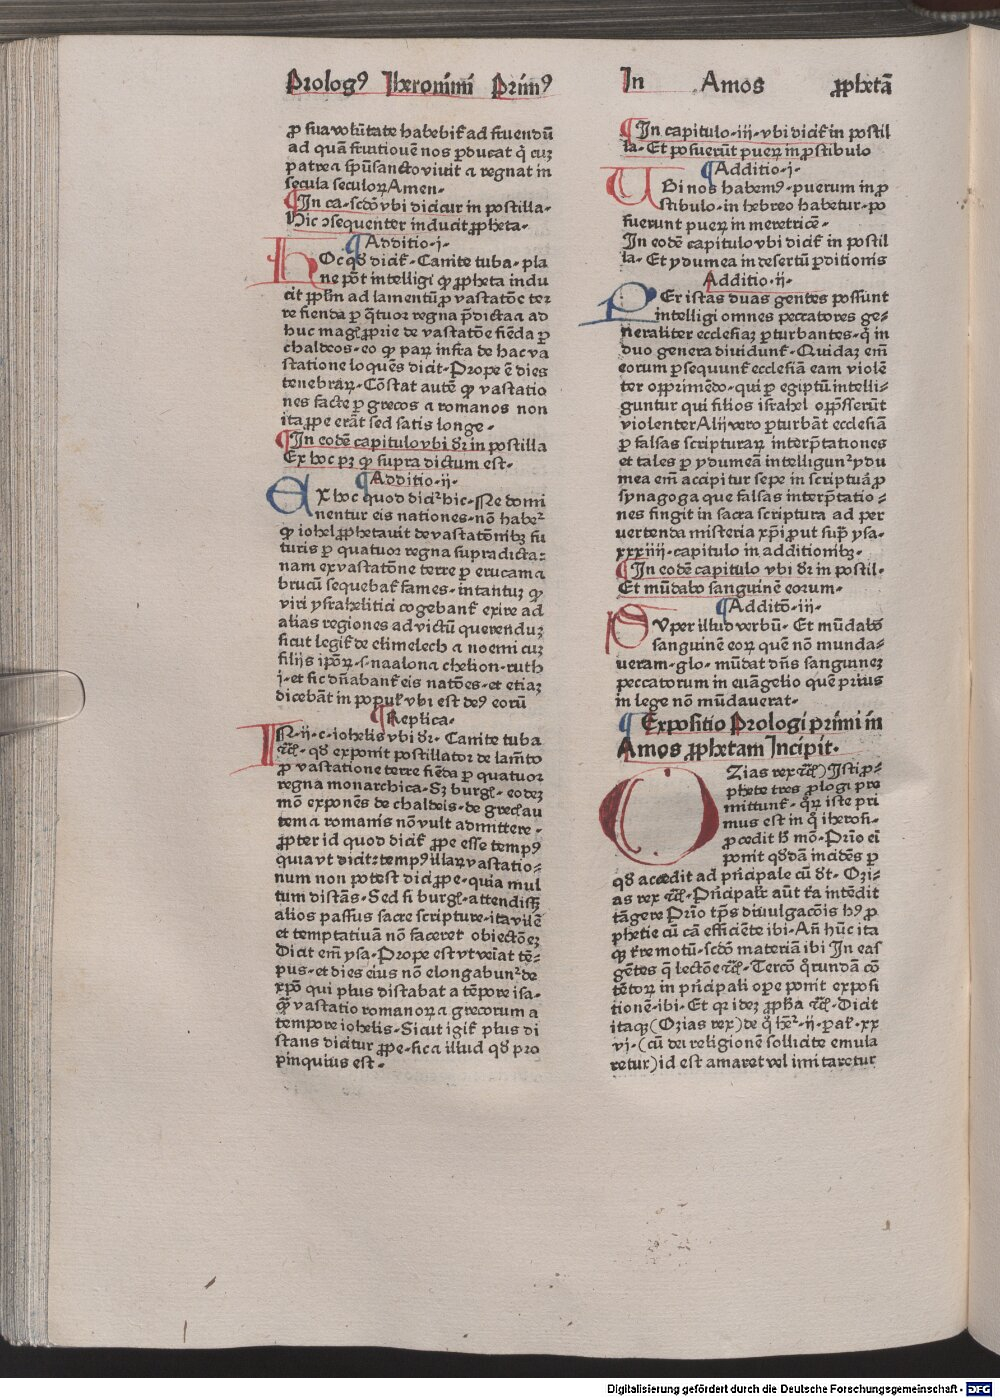 Prologꝰ Iheronimi Primꝰ
ꝓ sua volūtate habebit̄ ad fruendū
ad quā fruitionē nos ꝑducat q̇ cuꝫ
patre ⁊ spūsancto viuit ⁊ regnat in
secula seculoꝝ Amen.
¶ In ca. scd̄o vbi dicitur in postilla.
Hic ꝯsequenter inducit ꝓpheta.
¶ Additio .i.
HOc qd̄ dicit̄. Canite tuba. pla
ne pōt intelligi ꝙ ꝓpheta indu
cit ꝓpl̄m ad lamentū ꝓ vastatōe ter
re fienda ꝑ q̄tuor regna p̄dicta ⁊ ad
huc magꝭ ꝓprie de vastatōe fiēda ꝑ
chaldeos. eo ꝙ paꝝ infra de hac va
statione loquēs dicit. Prope ē dies
tenebraꝝ. Cōstat autē ꝙ vastatio
nes facte ꝑ grecos ⁊ romanos non
ita ꝓpe erāt sed satis longe.
¶ In codē capitulo vbi dr̄ in postilla
Ex hoc pꝫ ꝙ supra dictum est.
¶ Additio .ii.
EX hoc quod dicit᷑ hic. Ne domi
nentur eis nationes. nō habet᷑
ꝙ iohel ꝓphetauit de vastatōnibꝫ fu
turis ꝑ quatuor regna supradicta:
nam ex vastatōne terre ꝑ erucam ⁊
brucū sequebat̄ fames. intantuꝫ ꝙ
viri ysrahelitici cogebant̄ exire ad
alias regiones ad victū querenduꝫ
sicut legit̄ de elimelech ⁊ noemi cuꝫ
filijs ip̄oꝝ .s. naalon ⁊ chelion. ruth
i. et sic dn̄abant̄ eis natōes. et etiaꝫ
dicebāt in popul̄ vbi est deꝰ eorū
¶ Replica.
IN .ii. c. iohelis vbi dr̄. Canite tuba
⁊cͣ. qd̄ exponit postillator de lam̄to
ꝓ vastatione terre fiēda ꝑ quatuor
regna monarchica. Sꝫ burgͣ. eodeꝫ
mō exponēs de chaldeis. de grecꝭ au
tem ⁊ romanis nō vult admittere.
ꝓpter id quod dicit̄ ꝓpe esse tempꝰ
quia vt dicit: tempꝰ illaꝝ vastatio
num non potest dici ꝓpe. quia mul
tum distās. Sed si burgͣ. attendissꝫ
alios passus sacre scripture. ita vilē
et temptatiuā nō faceret obiectōeꝫ
Dicit em̄ ysa. Prope est vt veīat tē
pus. et dies eius nō elongabunt᷑ de
xp̄o qui plus distabat a tēpore isa.
q̄ꝫ vastatio romanoꝝ ⁊ grecorum a
tempore iohelis. Sicut igit̄ plus di
stans dicitur ꝓpe. sic ⁊ illud qd̄ pro
pinquius est.
In Amos ꝓphetā
¶ In capitulo .iii. vbi dicit̄ in postil
la. Et posuerūt pueꝝ in ꝓstibulo
¶ Additio .i.
UBi nos habemꝰ. puerum in ꝓ
stibulo. in hebreo habetur. po
suerunt pueꝝ in meretricē.
In eodē capitulo vbi dicit̄ in postil
la. Et ydumea in desertū ꝑditionis
Additio .ii.
PEr istas duas gentes possunt
intelligi omnes peccatores ge
neraliter ecclesiaꝫ ꝑturbantes. q̇ in
duo genera diuidunt̄. Quidaꝫ em̄
eorum ꝑsequunt̄ ecclesiā eam violē
ter opprimēdo. qui ꝑ egiptū intelli
guntur qui filios israhel opp̄sserūt
violenter Alij vero ꝑturbāt ecclesiā
ꝑ falsas scripturaꝝ interp̄tationes
et tales ꝑ ydumeā intelligunt᷑ ydu
mea em̄ accipitur sepe in scriptura ꝓ
synagoga que falsas interp̄tatio
nes fingit in sacra scriptura ad per
uertenda misteria xp̄i ꝓut sup̄ ysa.
xxxiiii. capitulo in additionibꝫ.
¶ In codē capitulo vbi dr̄ in postil.
Et mūdabo sanguinē eorum.
¶ Additō .iii.
SVper illud verbū. Et mūdabo
sanguinē eoꝝ quē nō munda
ueram. glo. mūdat dn̄s sanguineꝫ
peccatorum in euāgelio quē prius
in lege nō mūdauerat.
¶ Expositio Prologi primi in
Amos ꝓphetam Incipit.
OZias rex ⁊cͣ) Isti ꝓ
phete tres ꝓlogi pre
mittunt̄. quoꝝ iste pri
mus est in q̇ iheroni.
ꝓcedit h̄ mō. Prīo ei
ponit qd̄dā incidēs ꝑ
qd̄ accedit ad prīcipale cū dt̄. Ozi
as rex ⁊cͣ. Prīcipalr̄ aūt t̄ra intēdit
tāgere Prīo tp̄s diuulgacōis hꝰ ꝓ
phetie cū cā efficiēte ibi. An̄ hūc ita
qꝫ t̄re motū. scd̄o materiā ibi In eas
gētes q̄ lectōe ⁊cͣ. Tercō q̄rundā cō
tētoꝝ in prīcipali oꝑe ponit exposi
tionē. ibi. Et qꝛ ideꝫ ꝓph̄a ⁊cͣ. Dicit
itaqꝫ (Ozias rex) de q̇ hēt᷑ .ii. paꝉ. xx
vi. (cū dei religionē sollicite emula
retur) id est amaret vel imitaretur
Digitalisierung gefördert durch die Deutsche Forschungsgemeinschaft - DFG